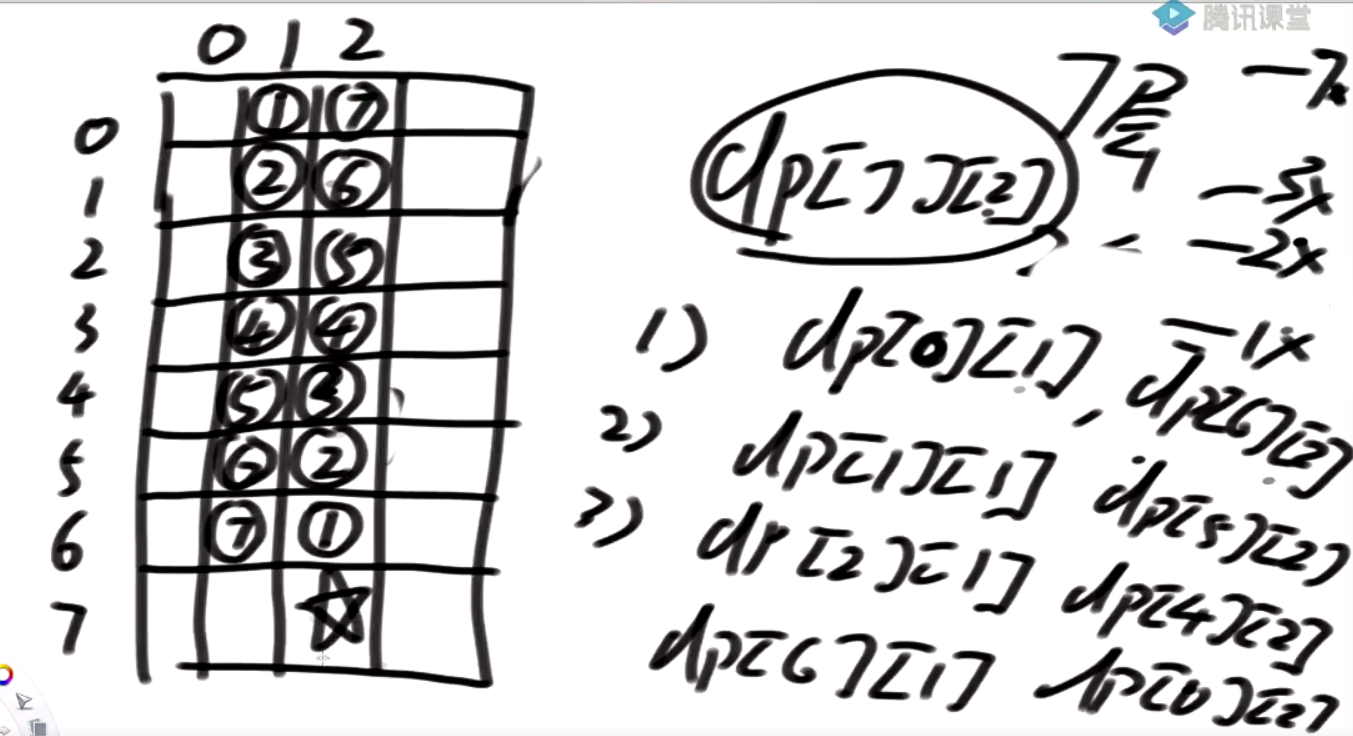 腾讯课堂
0 1 2
0 ① ⑦
1 ② ⑥
2 ③ ⑤
3 ④ ④
4 ⑤ ③
5 ⑥ ②
6 ⑦ ①
7
dp[7][2]
7层
-7x
-3x
-2x
-1x
1) dp[0][1], dp[6][2]
2) dp[1][1] dp[5][2]
3) dp[2][1] dp[4][2]
dp[6][1] dp[0][2]